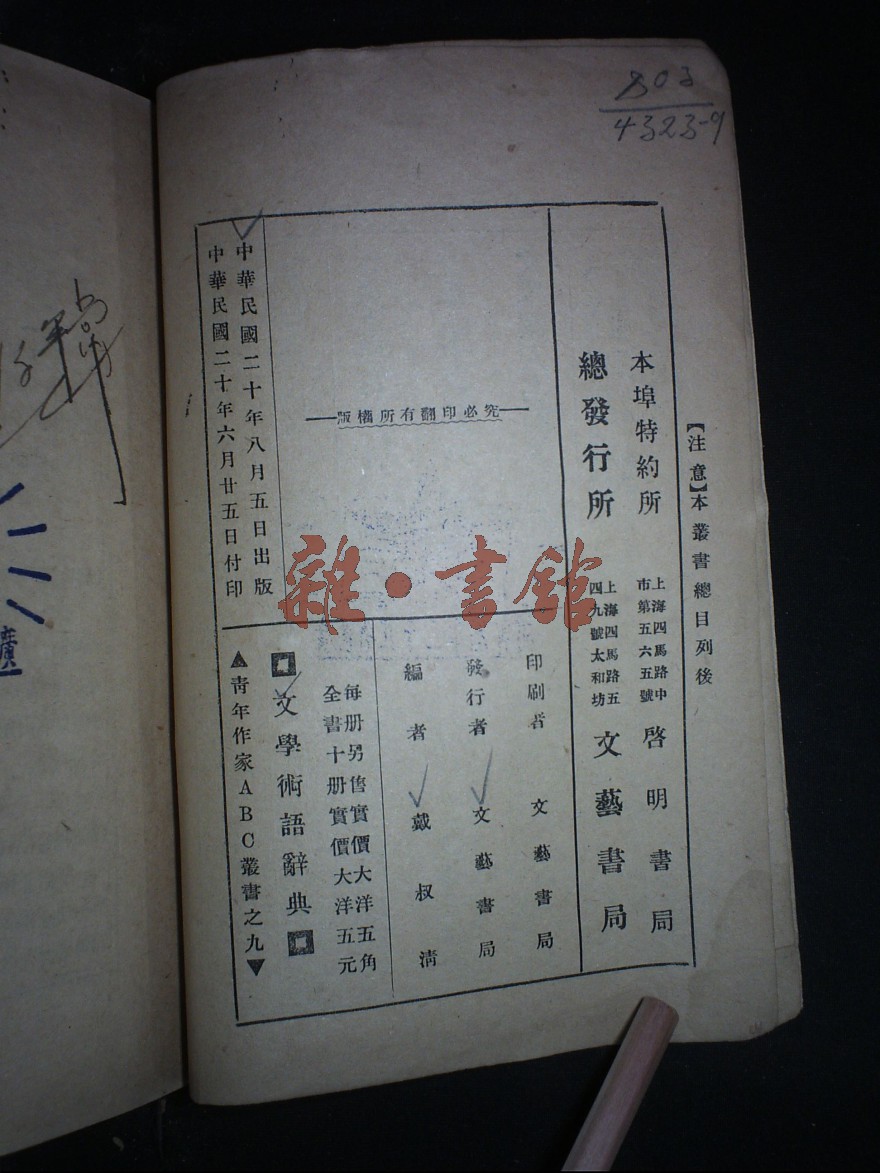 803
4323-9
【注意】本叢書總目列後
本埠特約所
上海四馬路中
市第五六五號
啓明書局
總發行所
上海四馬路五
四九號太和坊
文藝書局
版權所有翻印必究
印刷者 文藝書局
發行者 文藝書局
編者 戴叔清
每册另售實價大洋五角
全書十册實價大洋五元
文學術語辭典
▲青年作家ABC叢書之九▼
中華民國二十年八月五日出版
中華民國二十年六月廿五日付印
雜·書館